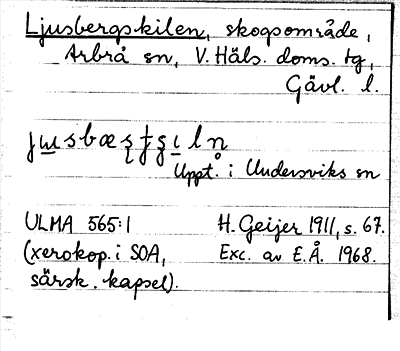 Ljusbergskilen, skogsområde,
Arbrå sn, V. Häls. doms. tg,
Gävl. l.
Uppt. i Undersviks sn
ULMA 565:1 H. Geijer 1911, s. 67.
(xerokop. i SOA, Exc. av E.Å. 1968.
särsk. kapsel).